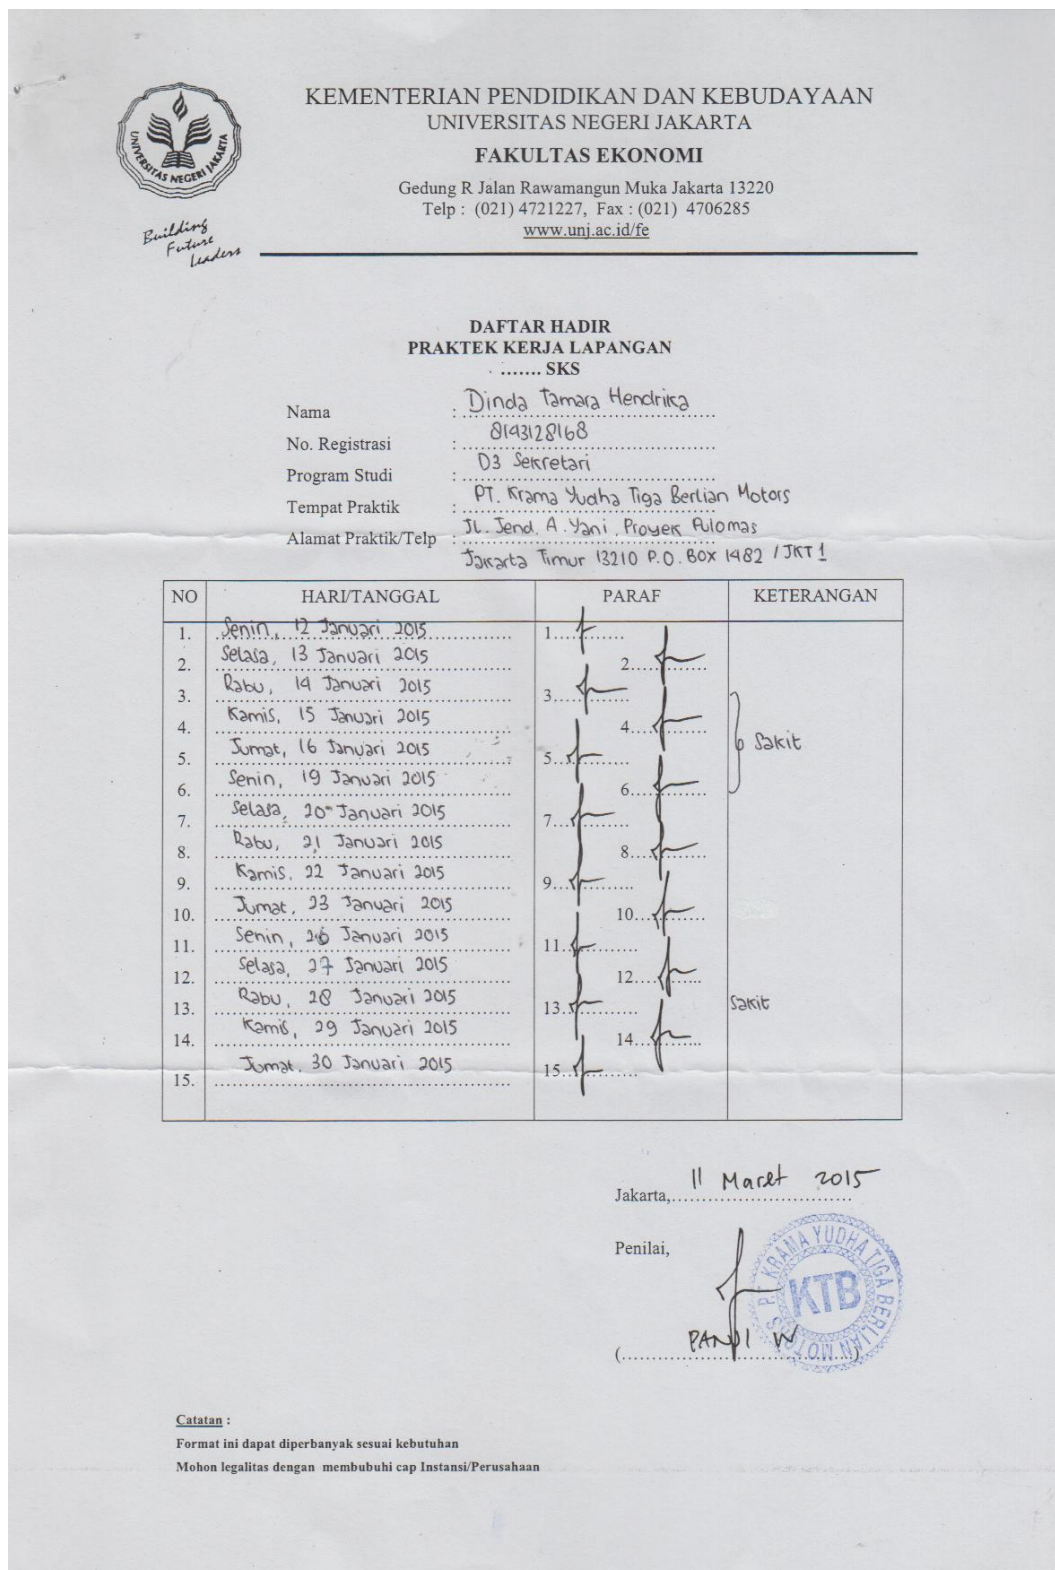 KEMENTERIAN PENDIDIKAN DAN KEBUDAYAAN
UNIVERSITAS NEGERI JAKARTA
FAKULTAS EKONOMI
Gedung R Jalan Rawamangun Muka Jakarta 13220
Telp : (021) 4721227, Fax : (021) 4706285
www.unj.ac.id/fe
UNIVERSITAS NEGERI JAKARTA
Building
Future
Leaders
DAFTAR HADIR
PRAKTEK KERJA LAPANGAN
....... SKS
Nama : Dinda Tamara Hendrika
No. Registrasi : 8143128168
Program Studi : D3 Sekretari
Tempat Praktik : PT. Krama Yudha Tiga Berlian Motors
Alamat Praktik/Telp : JL. Jend. A. Yani, Proyek Pulomas
Jakarta Timur 13210 P.O. BOX 1482 / JKT 1
NO HARI/TANGGAL PARAF KETERANGAN
1. Senin, 12 Januari 2015 1.
2. Selasa, 13 Januari 2015 2.
3. Rabu, 14 Januari 2015 3.
4. Kamis, 15 Januari 2015 4.
5. Jumat, 16 Januari 2015 5. Sakit
6. Senin, 19 Januari 2015 6.
7. Selasa, 20 Januari 2015 7.
8. Rabu, 21 Januari 2015 8.
9. Kamis, 22 Januari 2015 9.
10. Jumat, 23 Januari 2015 10.
11. Senin, 26 Januari 2015 11.
12. Selasa, 27 Januari 2015 12.
13. Rabu, 28 Januari 2015 13. Sakit
14. Kamis, 29 Januari 2015 14.
15. Jumat, 30 Januari 2015 15.
Jakarta, 11 Maret 2015
Penilai,
PT. KRAMA YUDHA TIGA BERLIAN MOTORS
KTB
(PANDI W)
Catatan :
Format ini dapat diperbanyak sesuai kebutuhan
Mohon legalitas dengan membubuhi cap Instansi/Perusahaan